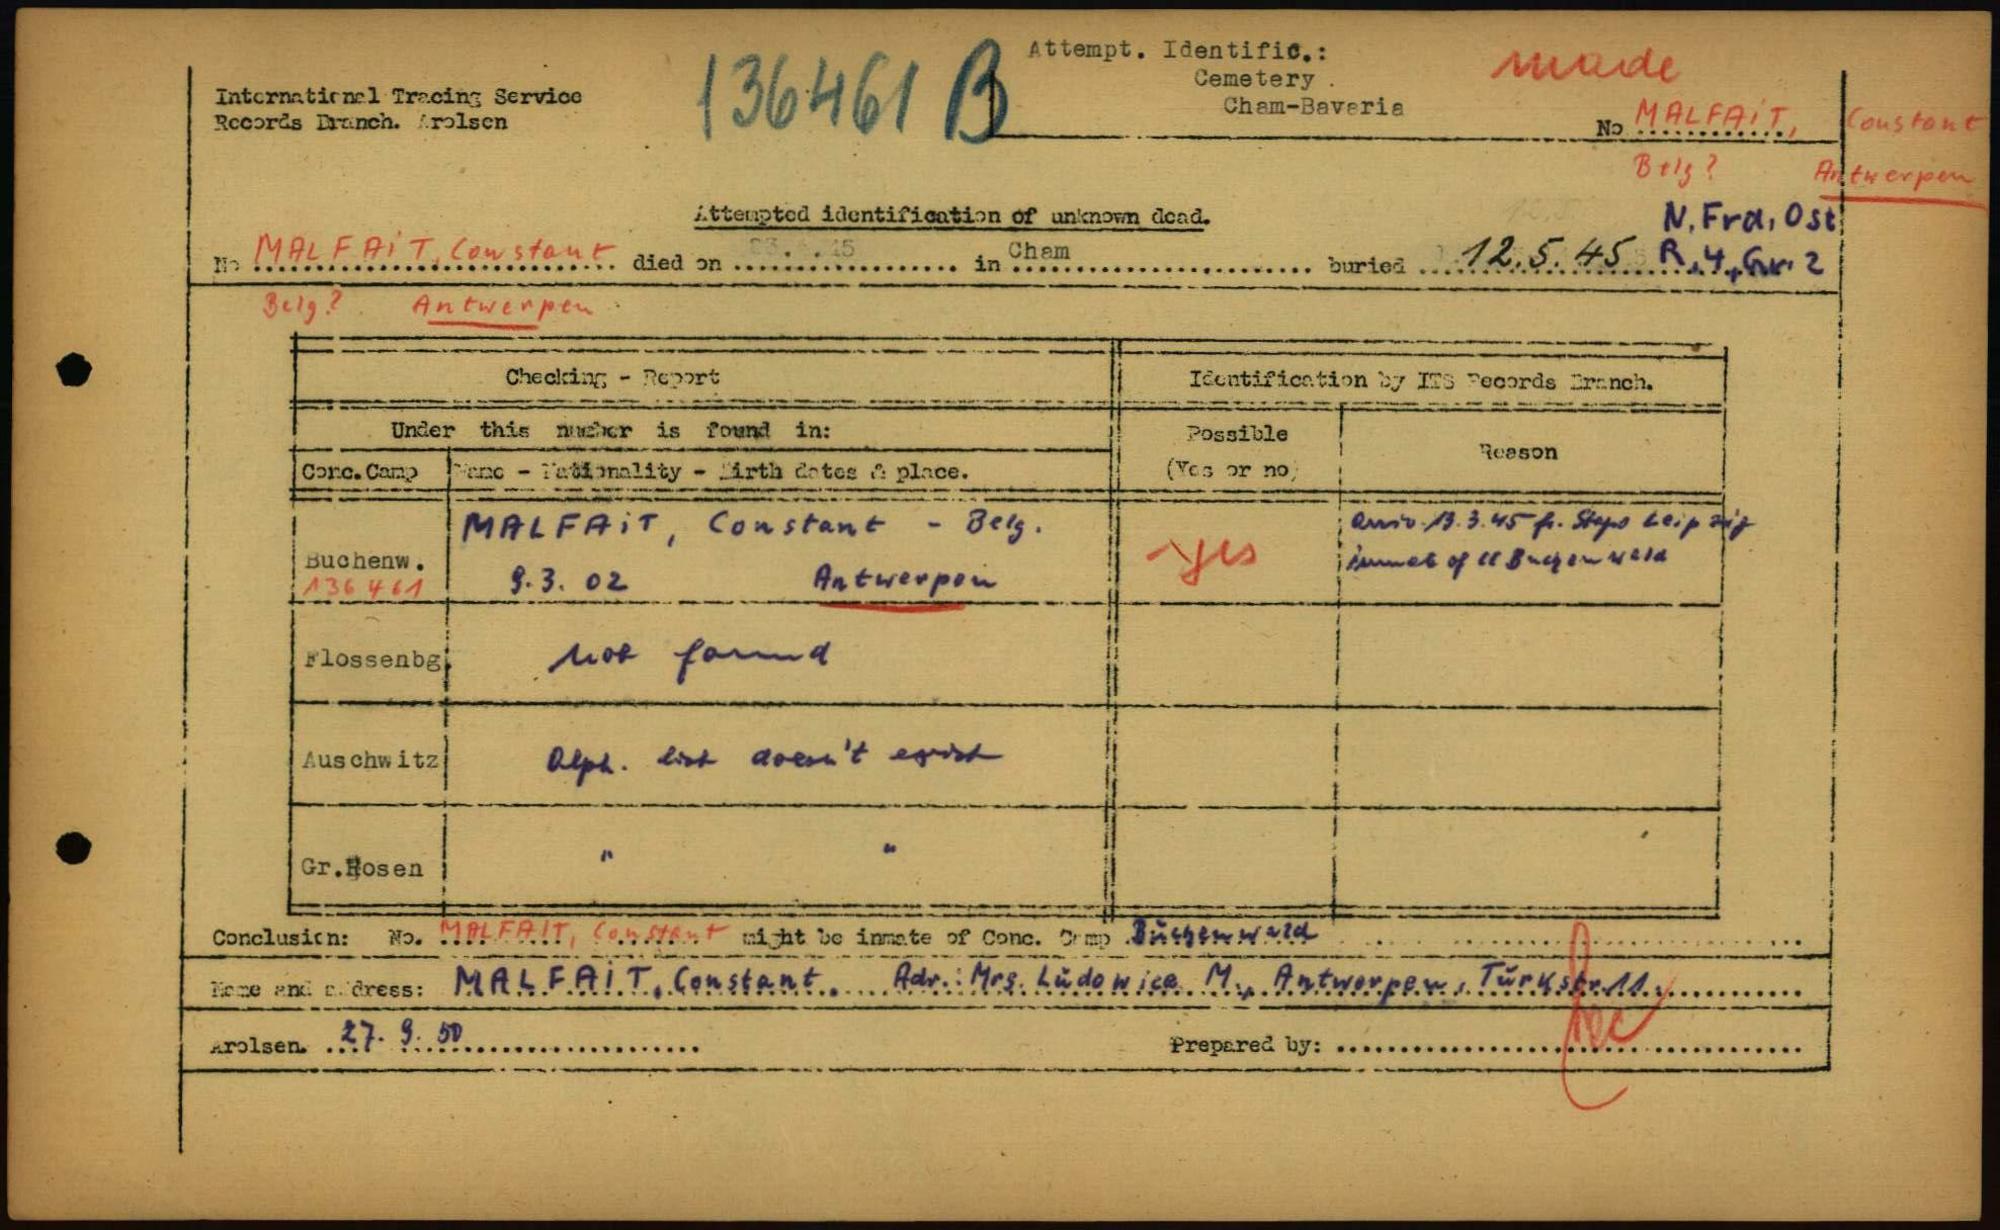 136461 B
Attempt. Identific.:
Cemetery
Cham-Bavaria
made
International Tracing Service
Records Branch. Arolsen
No MALFAiT, Constant
Belg? Antwerpen
Attempted identification of unknown dead.
N. Frd. Ost
No MALFAiT, Constant died on in Cham buried 12.5.45 R. 4, Gr. 2
Belg? Antwerpen
Checking - Report
Identification by ITS Records Branch.
Under this number is found in:
Possible
(Yes or no)
Reason
Conc.Camp Name - Nationality - Birth dates & place.
Buchenw.
136461
MALFAiT, Constant - Belg.
9.3.02 Antwerpen
yes
arriv. 13.3.45 fr. Stapo Leipzig
inmate of CC Buchenwald
Flossenbg. not found
Auschwitz Alph. list doesn't exist
Gr.Rosen " "
Conclusion: No. MALFAIT, Constant might be inmate of Conc. Camp Buchenwald
Name and address: MALFAIT, Constant. Adr.: Mrs. Ludowica M., Antwerpen, Turkstr. 11.
Arolsen. 27. 9. 50 Prepared by: